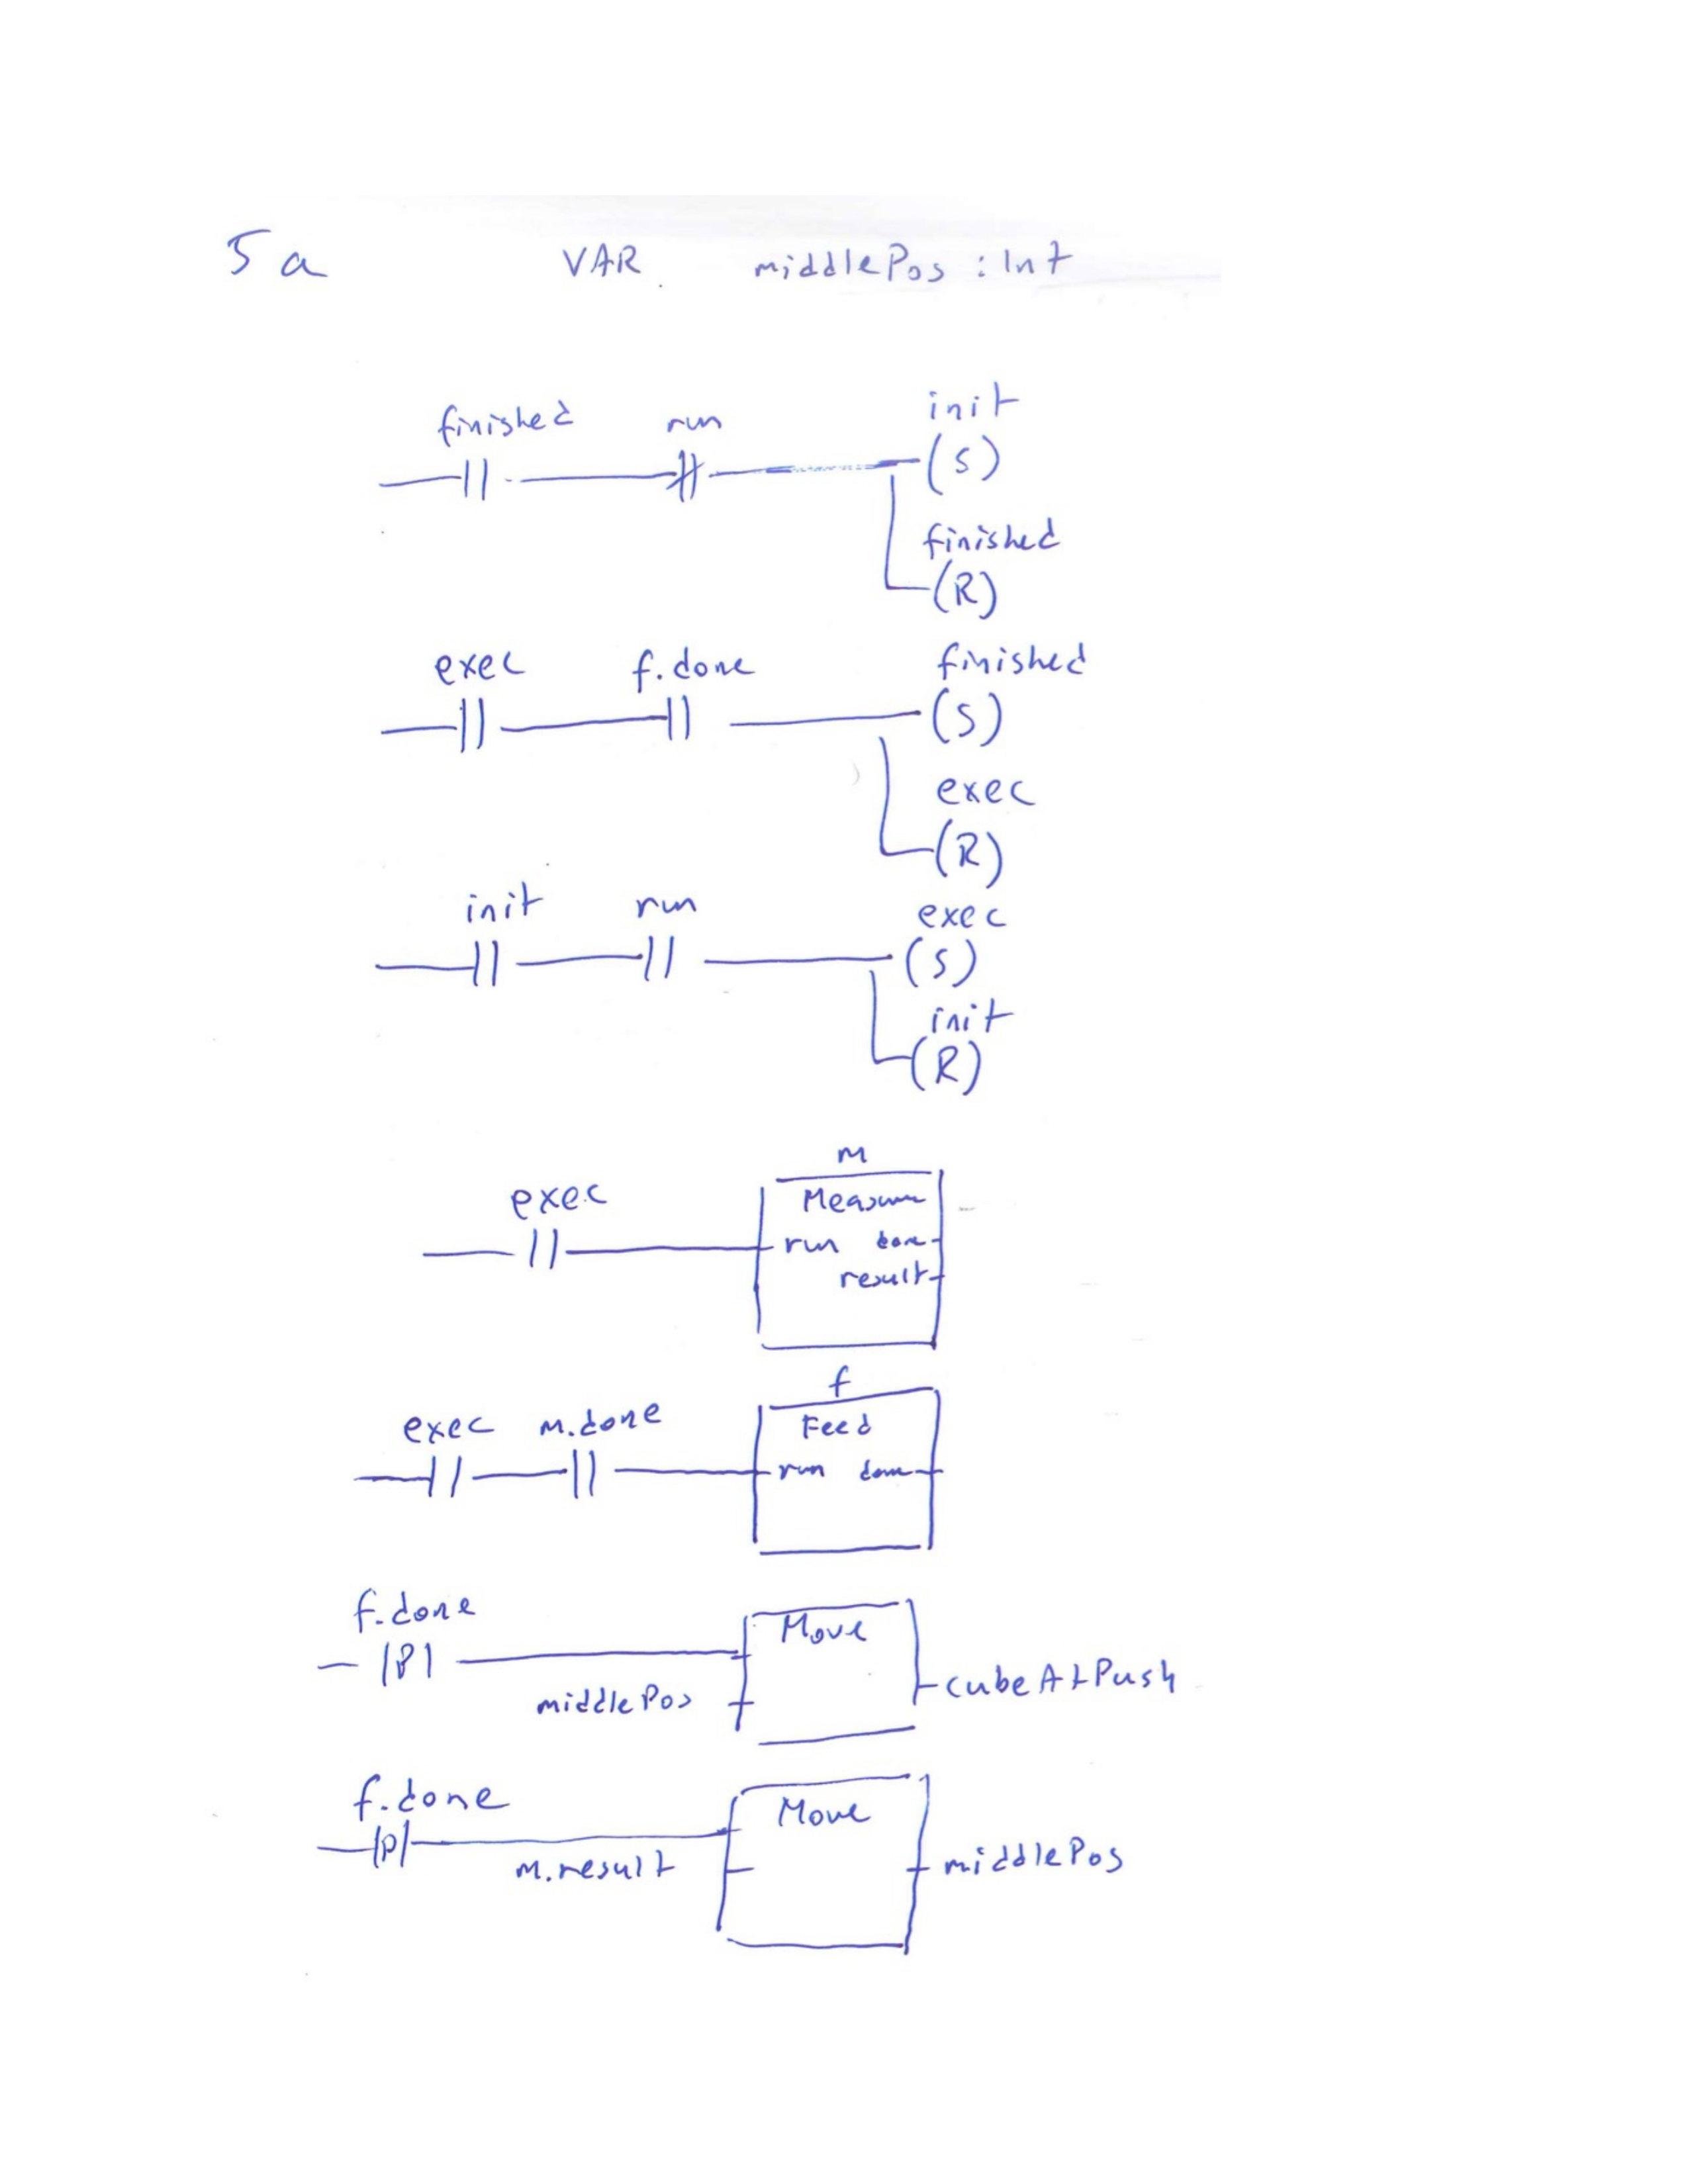 5a VAR middlePos : Int
finished run init
(S)
finished
(R)
exec f.done finished
(S)
exec
(R)
init run exec
(S)
init
(R)
m
exec Measure
run done
result
f
exec m.done Feed
run done
f.done Move
|P|
middlePos cubeAtPush
f.done Move
|P|
m.result middlePos